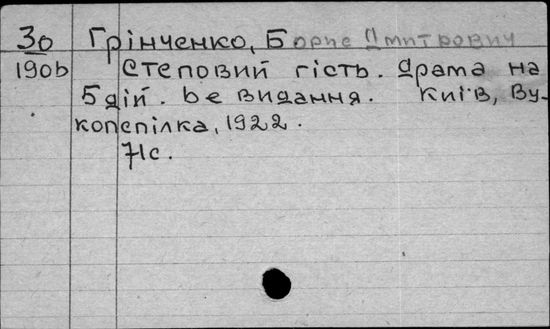 Зо Грінченко, Борис Дмитрович
190b Степовий гість. Драма на
5 дій. 6е видання. Київ, Ву-
копспілка, 1922.
71с.